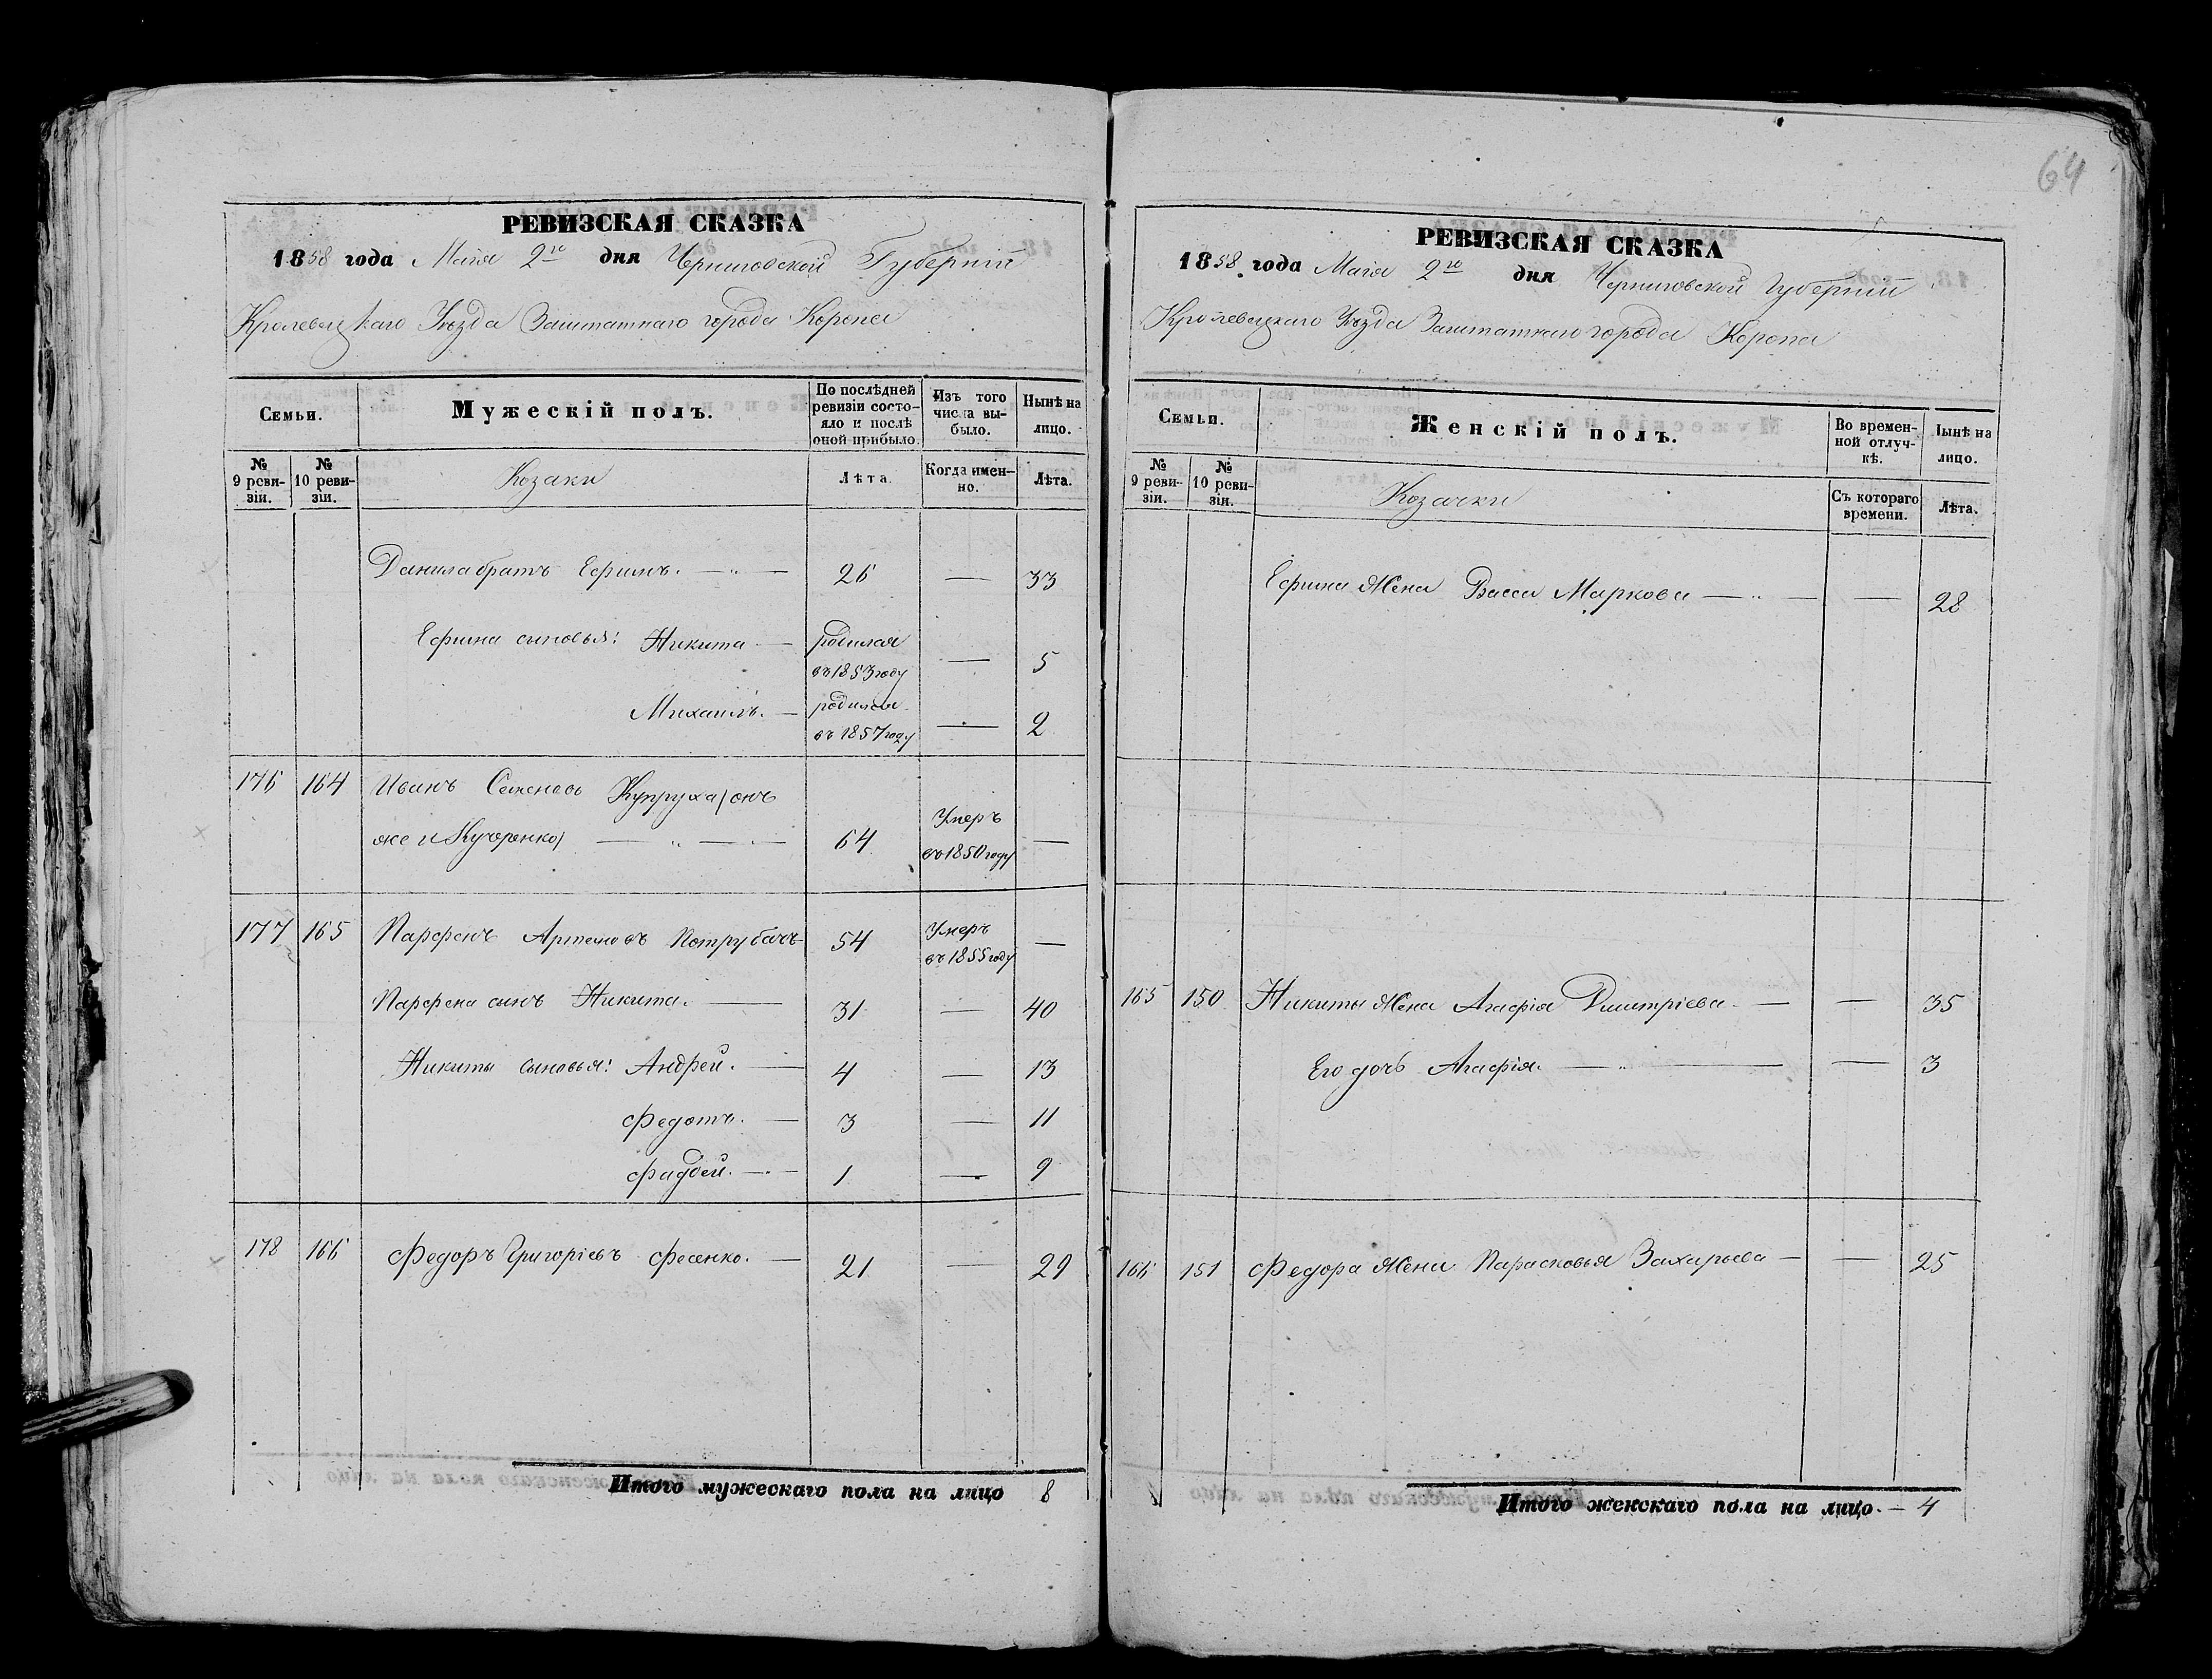 64
РЕВИЗСКАЯ СКАЗКА
1858 года Маія 2го дня Черниговской Губерніи
Кролевецкаго Уѣзда Заштатнаго города Коропа
Семьи.
Мужескій полъ.
По послѣдней ревизіи состояло и послѣ оной прибыло.
Изъ того числа выбыло.
Нынѣ на лицо.
№ 9 ревизіи.
№ 10 ревизіи.
Козаки
Лѣта.
Когда именно.
Лѣта.
Данила братъ Ефимъ. — 26 — 33
Ефима сыновья: Никита — родился въ 1853 году — 5
Михаилъ. — родился въ 1857 году — 2
176 164 Иванъ Семеновъ Купруха (онъ
же и Кучеренко) — 64 Умеръ въ 1850 году —
177 165 Парфенъ Артемовъ Потрубачъ 54 Умеръ въ 1855 году —
Парфена сынъ Никита. — 31 — 40
Никиты сыновья: Андрей. — 4 — 13
Федотъ. — 3 — 11
Фадей. — 1 — 9
178 166 Федоръ Григоріевъ Фесенко. — 21 — 29
Итого мужескаго пола на лицо 8
РЕВИЗСКАЯ СКАЗКА
1858 года Маія 2го дня Черниговской Губерніи
Кролевецкаго Уѣзда Заштатнаго города Коропа
Семьи.
Женскій полъ.
Во временной отлучкѣ.
Нынѣ на лицо.
№ 9 ревизіи.
№ 10 ревизіи.
Козачки
Съ котораго времени.
Лѣта.
Ефима жена Васса Маркова — — 28
165 150 Никиты жена Агафія Дмитріева — — 35
Его дочь Агафія. — — 3
166 151 Федора жена Парасковья Захарьева — — 25
Итого женскаго пола на лицо. — 4